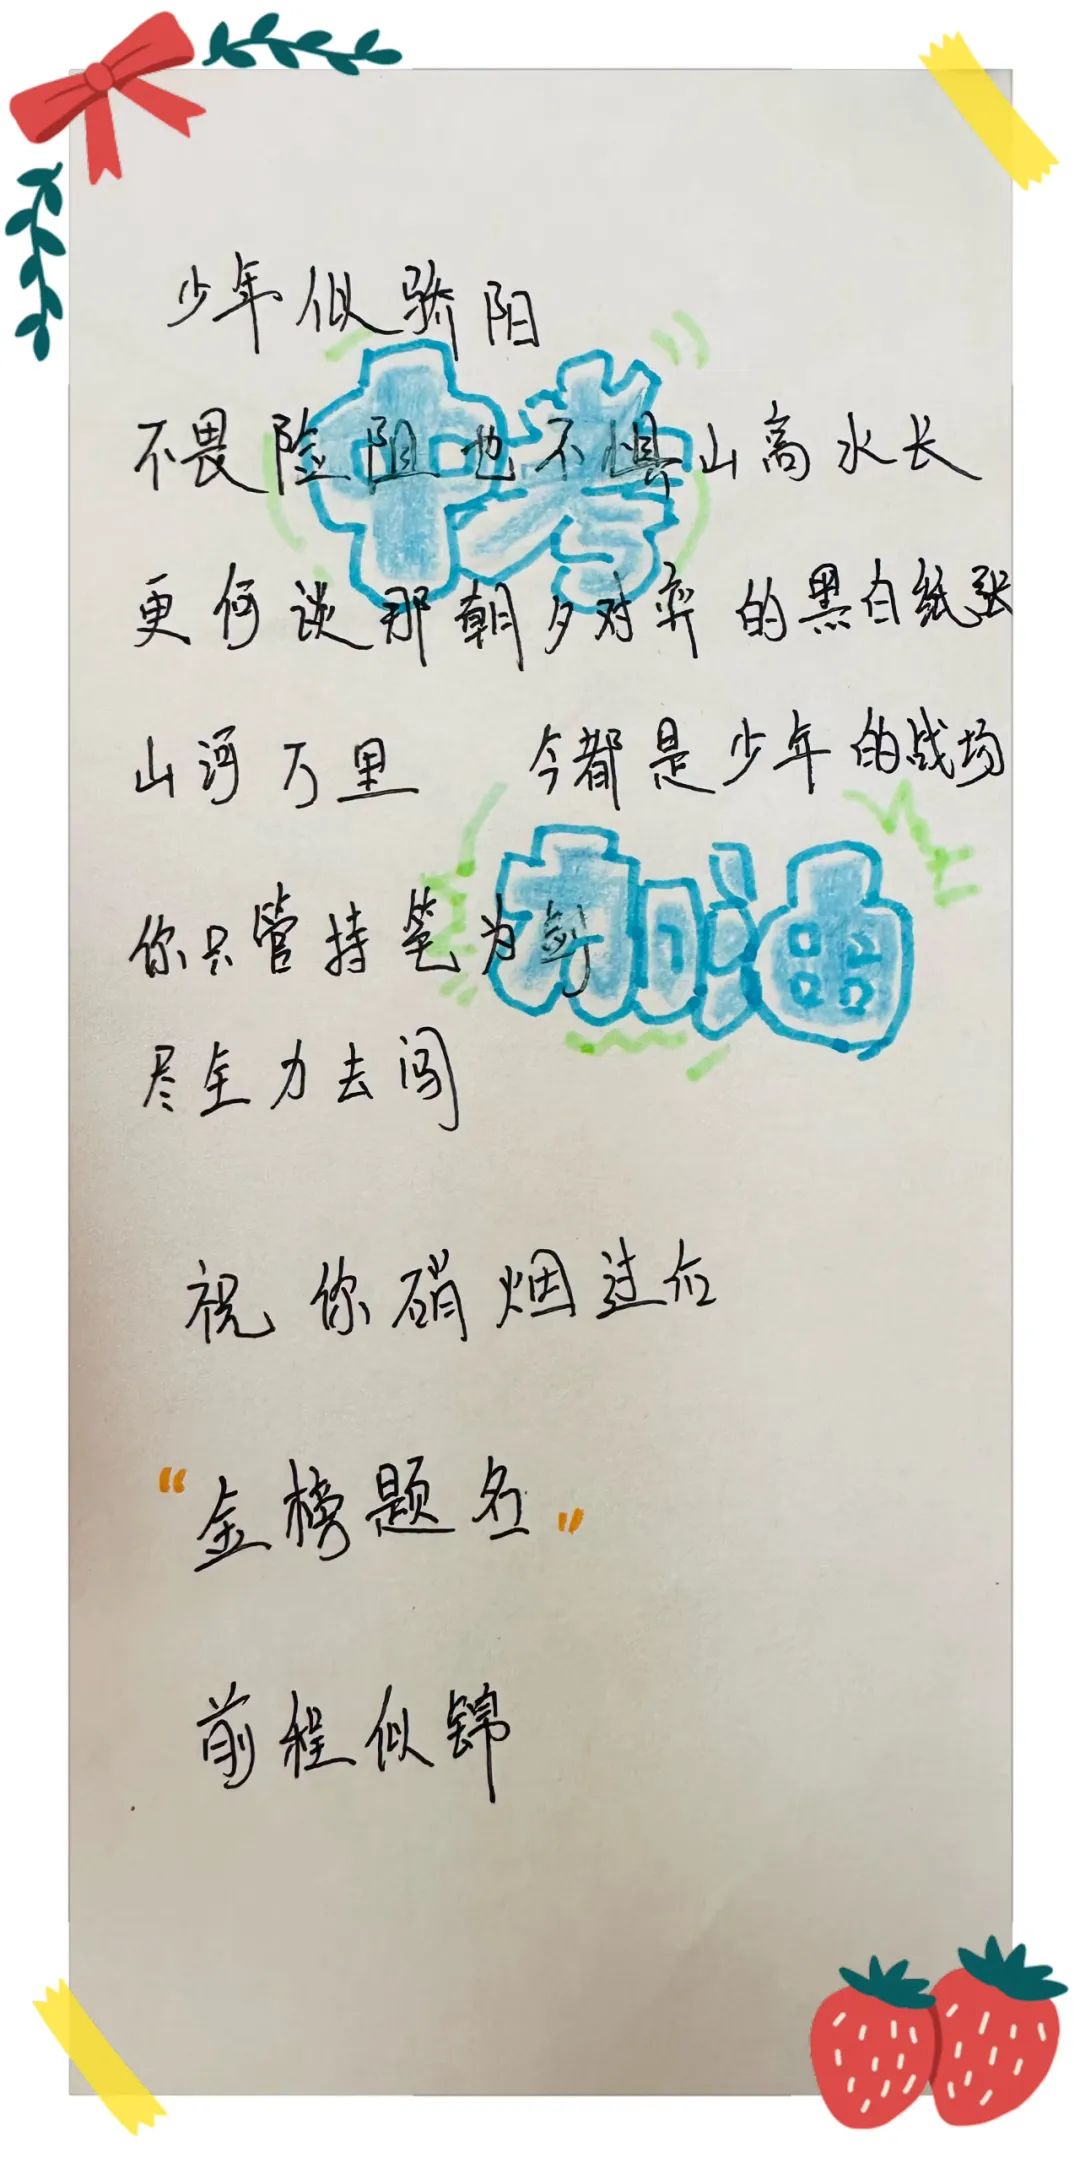 少年似骄阳
中考
不畏险阻也不惧山高水长
更何谈那朝夕对弈的黑白纸张
山河万里 今都是少年的战场
加油
你只管持笔为剑
尽全力去闯
祝你硝烟过后
“金榜题名”
前程似锦